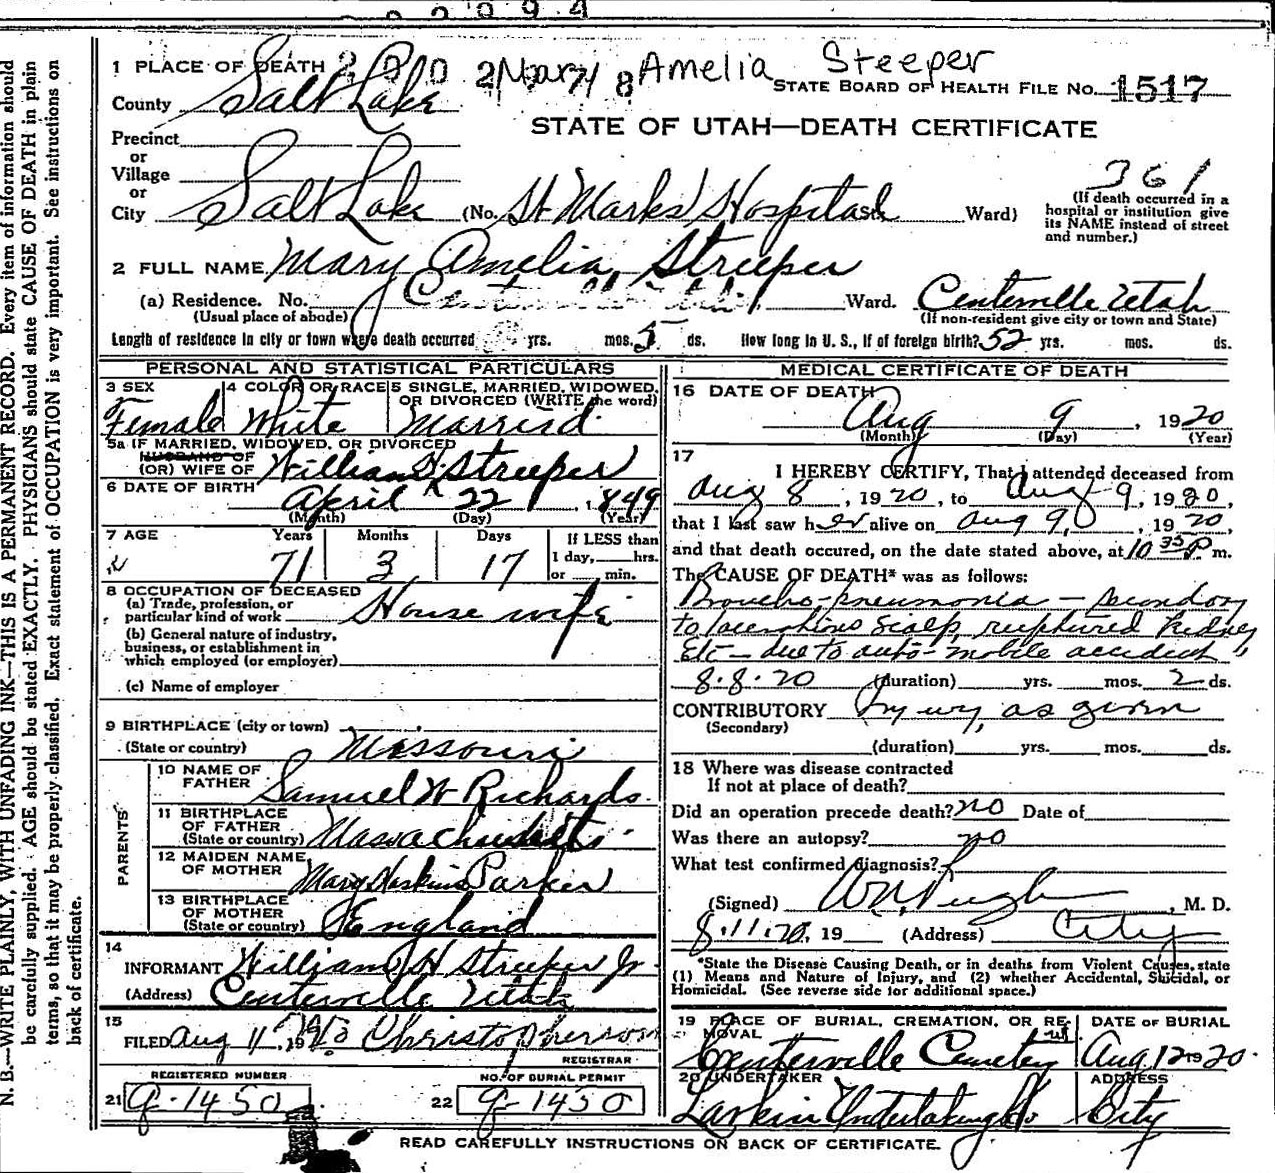 2994
1 PLACE OF DEATH 2 8 0 2 Mary 8 Amelia Steeper
County Salt Lake STATE BOARD OF HEALTH FILE NO. 1517
STATE OF UTAH—DEATH CERTIFICATE
Precinct
or
Village
or
City Salt Lake (No. St Marks Hospital St. Ward)
361
(If death occurred in a
hospital or institution give
its NAME instead of street
and number.)
2 FULL NAME Mary Amelia Streeper
(a) Residence. No. Ward. Centerville Utah
(Usual place of abode) (If non-resident give city or town and State)
Length of residence in city or town where death occurred yrs. mos. 5 ds. How long in U. S., if of foreign birth? 52 yrs. mos. ds.
PERSONAL AND STATISTICAL PARTICULARS
3 SEX 4 COLOR OR RACE 5 SINGLE, MARRIED, WIDOWED,
OR DIVORCED (WRITE the word)
Female White Married
5a IF MARRIED, WIDOWED, OR DIVORCED
HUSBAND OF
(OR) WIFE OF William H Streeper
6 DATE OF BIRTH April 22, 1849
(Month) (Day) (Year)
7 AGE Years Months Days If LESS than
71 3 17 1 day, hrs.
or min.
8 OCCUPATION OF DECEASED
(a) Trade, profession, or
particular kind of work House wife
(b) General nature of industry,
business, or establishment in
which employed (or employer)
(c) Name of employer
9 BIRTHPLACE (city or town)
(State or country) Missouri
PARENTS
10 NAME OF
FATHER Samuel W Richards
11 BIRTHPLACE
OF FATHER
(State or country) Massachusetts
12 MAIDEN NAME
OF MOTHER Mary Haskins Parker
13 BIRTHPLACE
OF MOTHER
(State or country) England
14
INFORMANT William H Streeper Jr
(Address) Centerville Utah
15
FILED Aug 11 19 Christopherson
REGISTRAR
REGISTERED NUMBER NO. OF BURIAL PERMIT
21 g-1450 22 g-1450
MEDICAL CERTIFICATE OF DEATH
16 DATE OF DEATH
Aug 9, 1920
(Month) (Day) (Year)
17
I HEREBY CERTIFY, That I attended deceased from
Aug 8, 1920, to Aug 9, 1920,
that I last saw her alive on Aug 9, 1920,
and that death occured, on the date stated above, at 10 35 P m.
The CAUSE OF DEATH* was as follows:
Broncho-pneumonia — secondary
to lacerations scalp, ruptured kidney
Etc — due to auto-mobile accident,
8.8.20 (duration) yrs. mos. 2 ds.
CONTRIBUTORY Injury, as given
(Secondary)
(duration) yrs. mos. ds.
18 Where was disease contracted
If not at place of death?
Did an operation precede death? no Date of
Was there an autopsy? no
What test confirmed diagnosis?
(Signed) , M. D.
8.11.20, 19 (Address) City
*State the Disease Causing Death, or in deaths from Violent Causes, state
(1) Means and Nature of Injury, and (2) whether Accidental, Suicidal, or
Homicidal. (See reverse side for additional space.)
19 PLACE OF BURIAL, CREMATION, OR RE-
MOVAL DATE OF BURIAL
Centerville Cemetery Aug 12 1920
20 UNDERTAKER ADDRESS
Larkin Undertaking Co City
READ CAREFULLY INSTRUCTIONS ON BACK OF CERTIFICATE.
N. B.—WRITE PLAINLY, WITH UNFADING INK—THIS IS A PERMANENT RECORD. Every item of information should
be carefully supplied. AGE should be stated EXACTLY. PHYSICIANS should state CAUSE OF DEATH in plain
terms, so that it may be properly classified. Exact statement of OCCUPATION is very important. See instructions on
back of certificate.